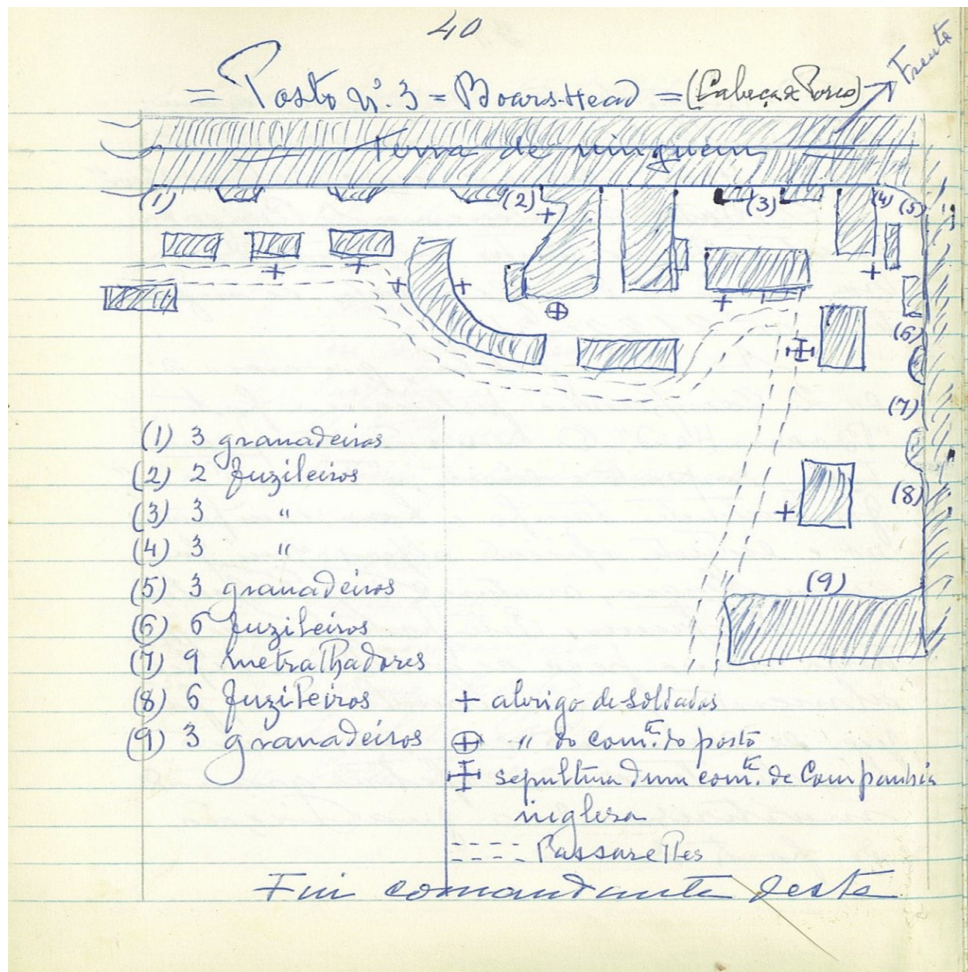 40
= Posto nº. 3 = Boars-Head = (Cabeça de Porco)
Frente
Terra de ninguem
(1) (2) (3) (4) (5)
(6)
(7)
(8)
(9)
(1) 3 granadeiros
(2) 2 fuzileiros
(3) 3 "
(4) 3 "
(5) 3 granadeiros
(6) 6 fuzileiros
(7) 9 metralhadores
(8) 6 fuzileiros
(9) 3 granadeiros
+ abrigo de soldados
⊕ " do comte. do posto
sepultura dum comte. de Companhia
inglesa
---- Passarelles
Fui comandante deste